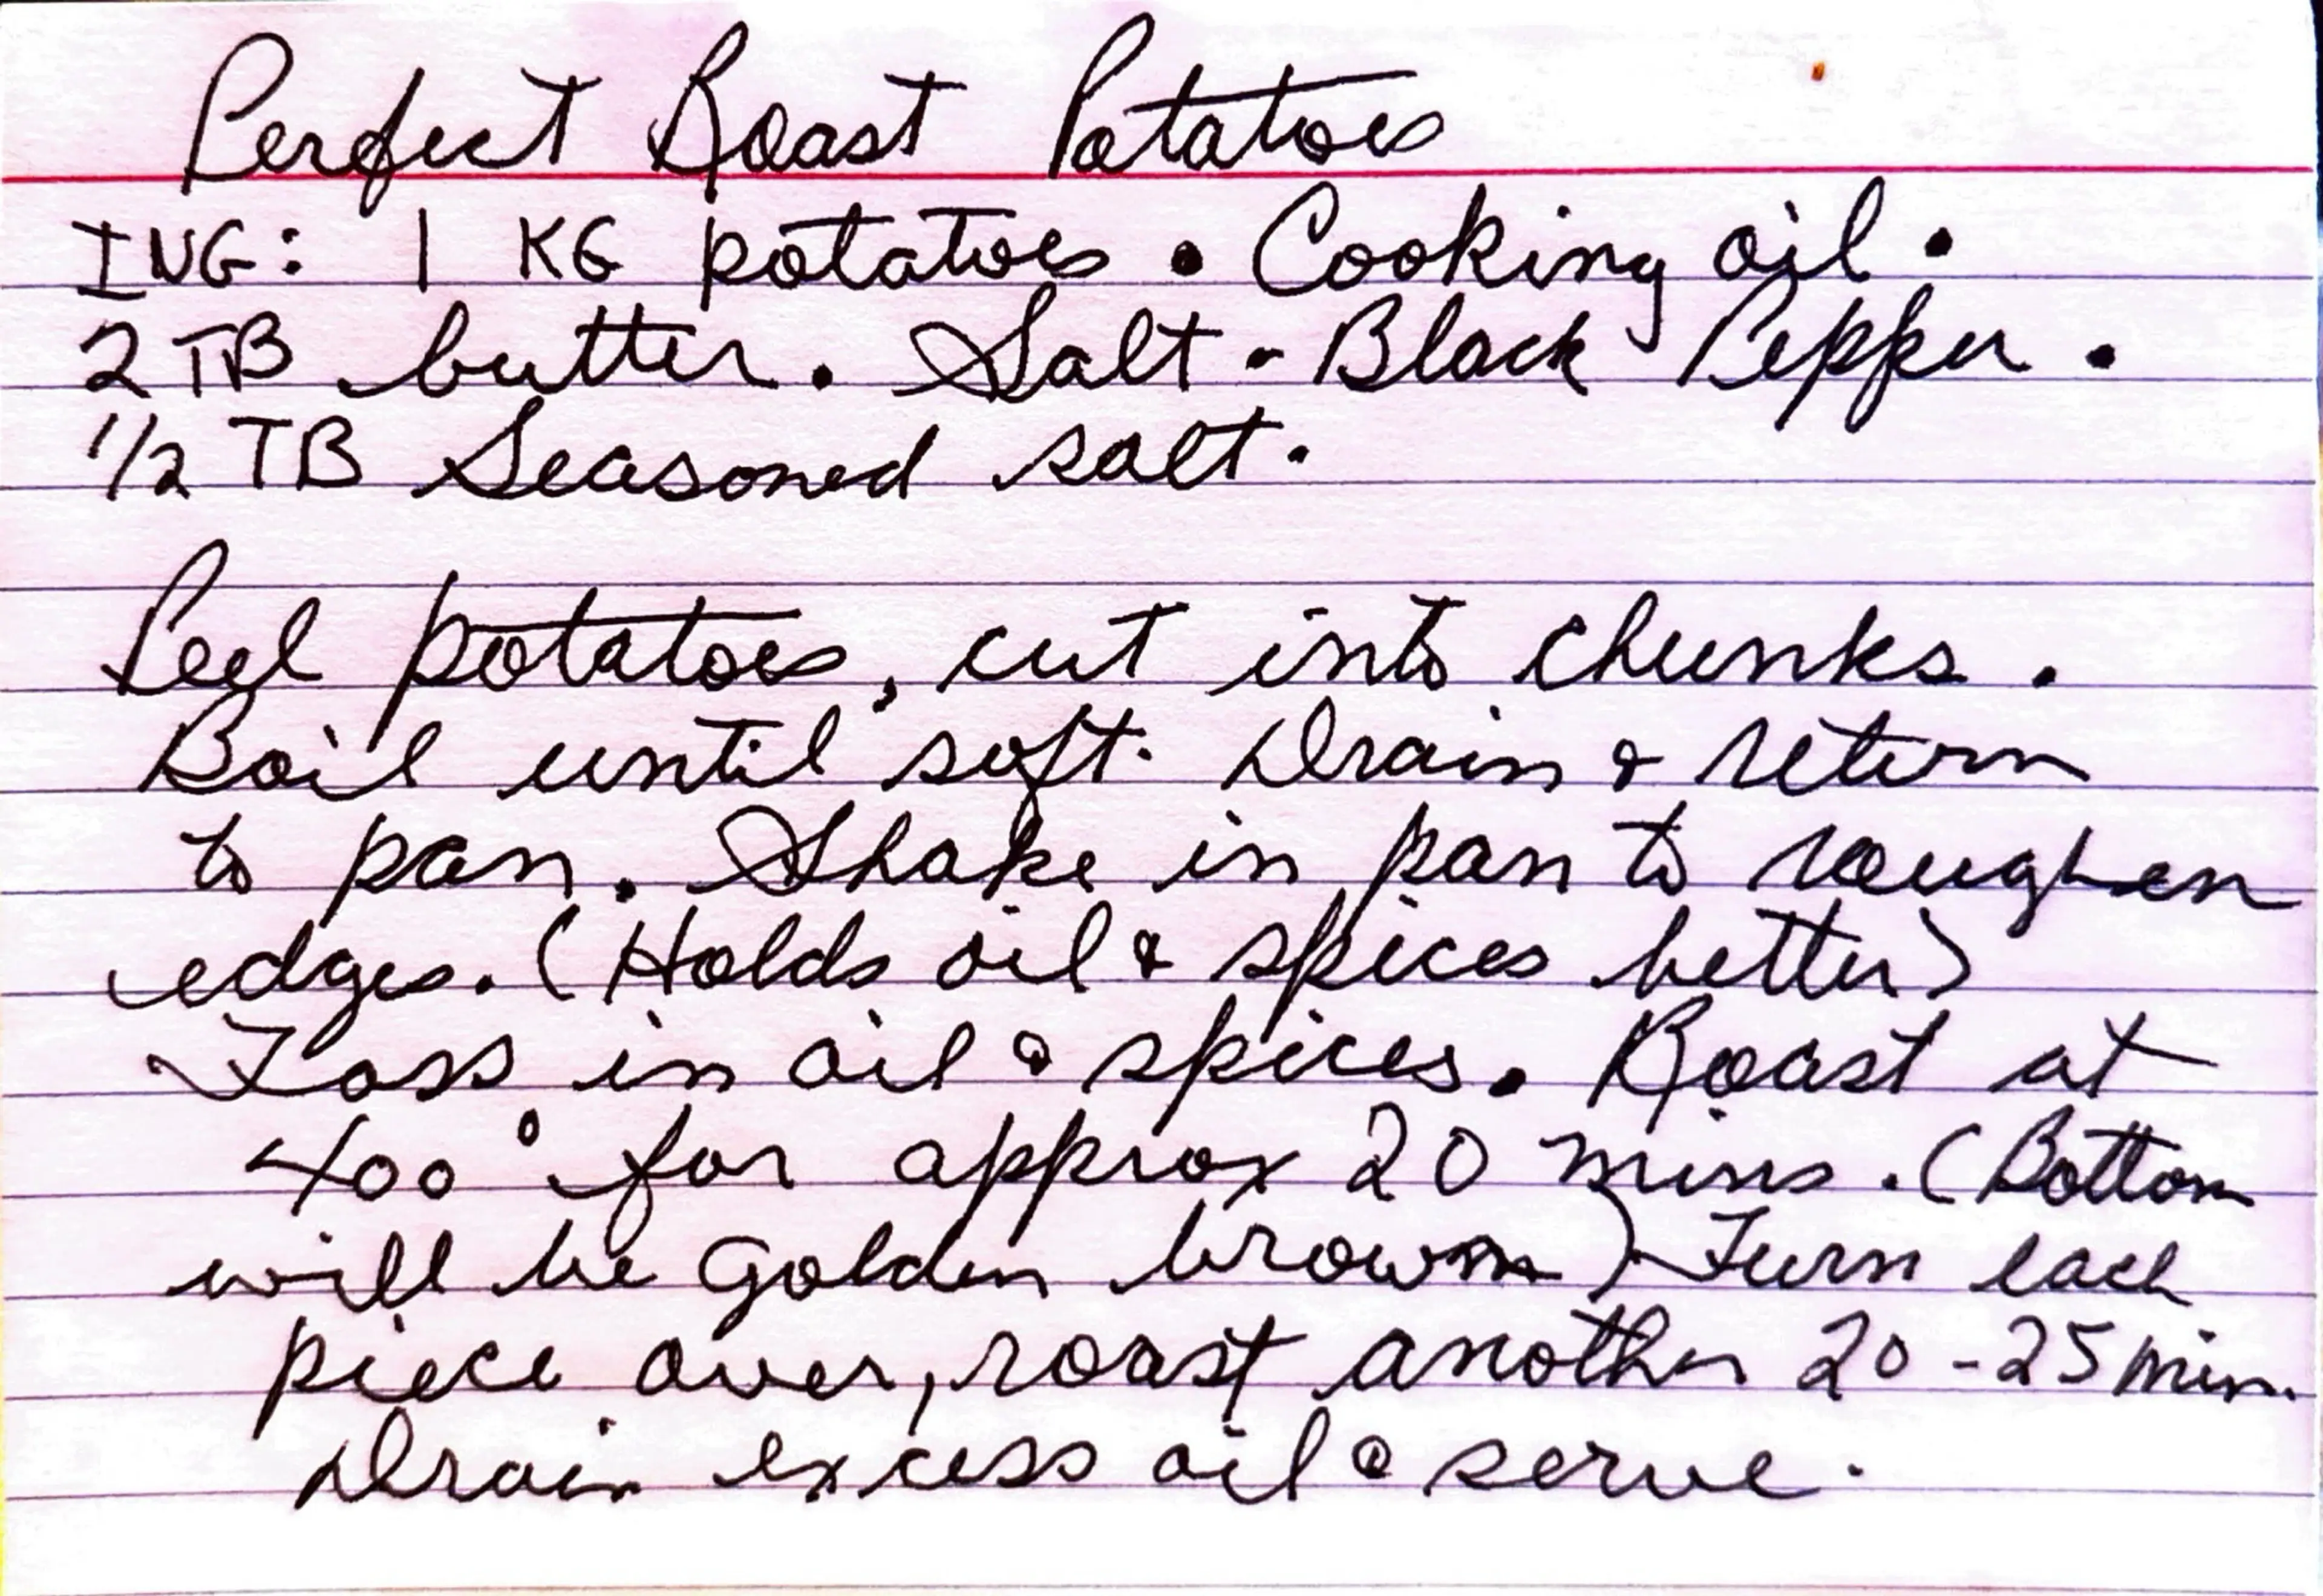 Perfect Roast Potatoes
ING: 1 KG potatoes • Cooking oil •
2 TB butter. Salt - Black Pepper.
1/2 TB Seasoned salt.
Peel potatoes, cut into chunks.
Boil until soft. Drain & return
to pan. Shake in pan to roughen
edges. (Holds oil & spices better)
Toss in oil & spices. Roast at
400° for approx 20 mins. (Bottom
will be Golden brown) Turn each
piece over, roast another 20-25 min.
Drain excess oil & serve.